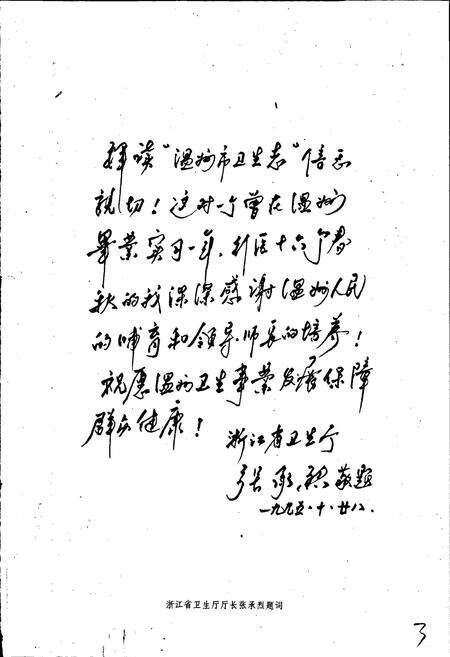 拜读"温州市卫生志"倍感
亲切！这对一个曾在温州
毕业实习一年、行医十六个春
秋的我深深感谢温州人民
的哺育和领导、师长的培养！
祝愿温州卫生事业发展保障
群众健康！
浙江省卫生厅
张承烈敬题
一九九五·十·廿八.
浙江省卫生厅厅长张承烈题词
3